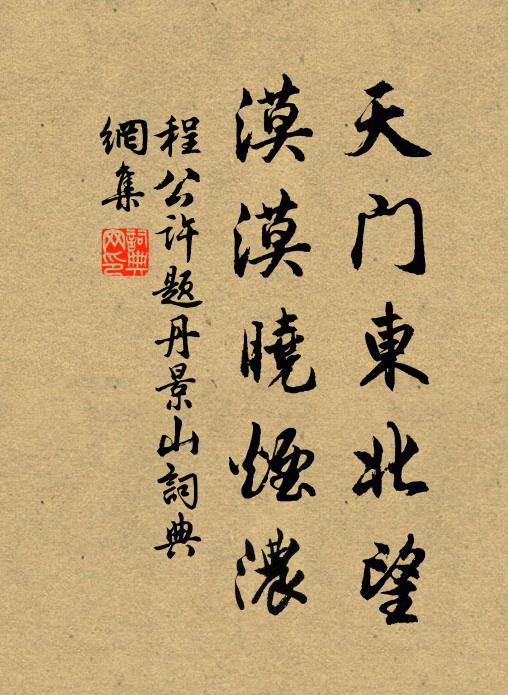 天门東北望
漠漠曉煙濃
程公许题丹景山詞典
網集
詞典網印